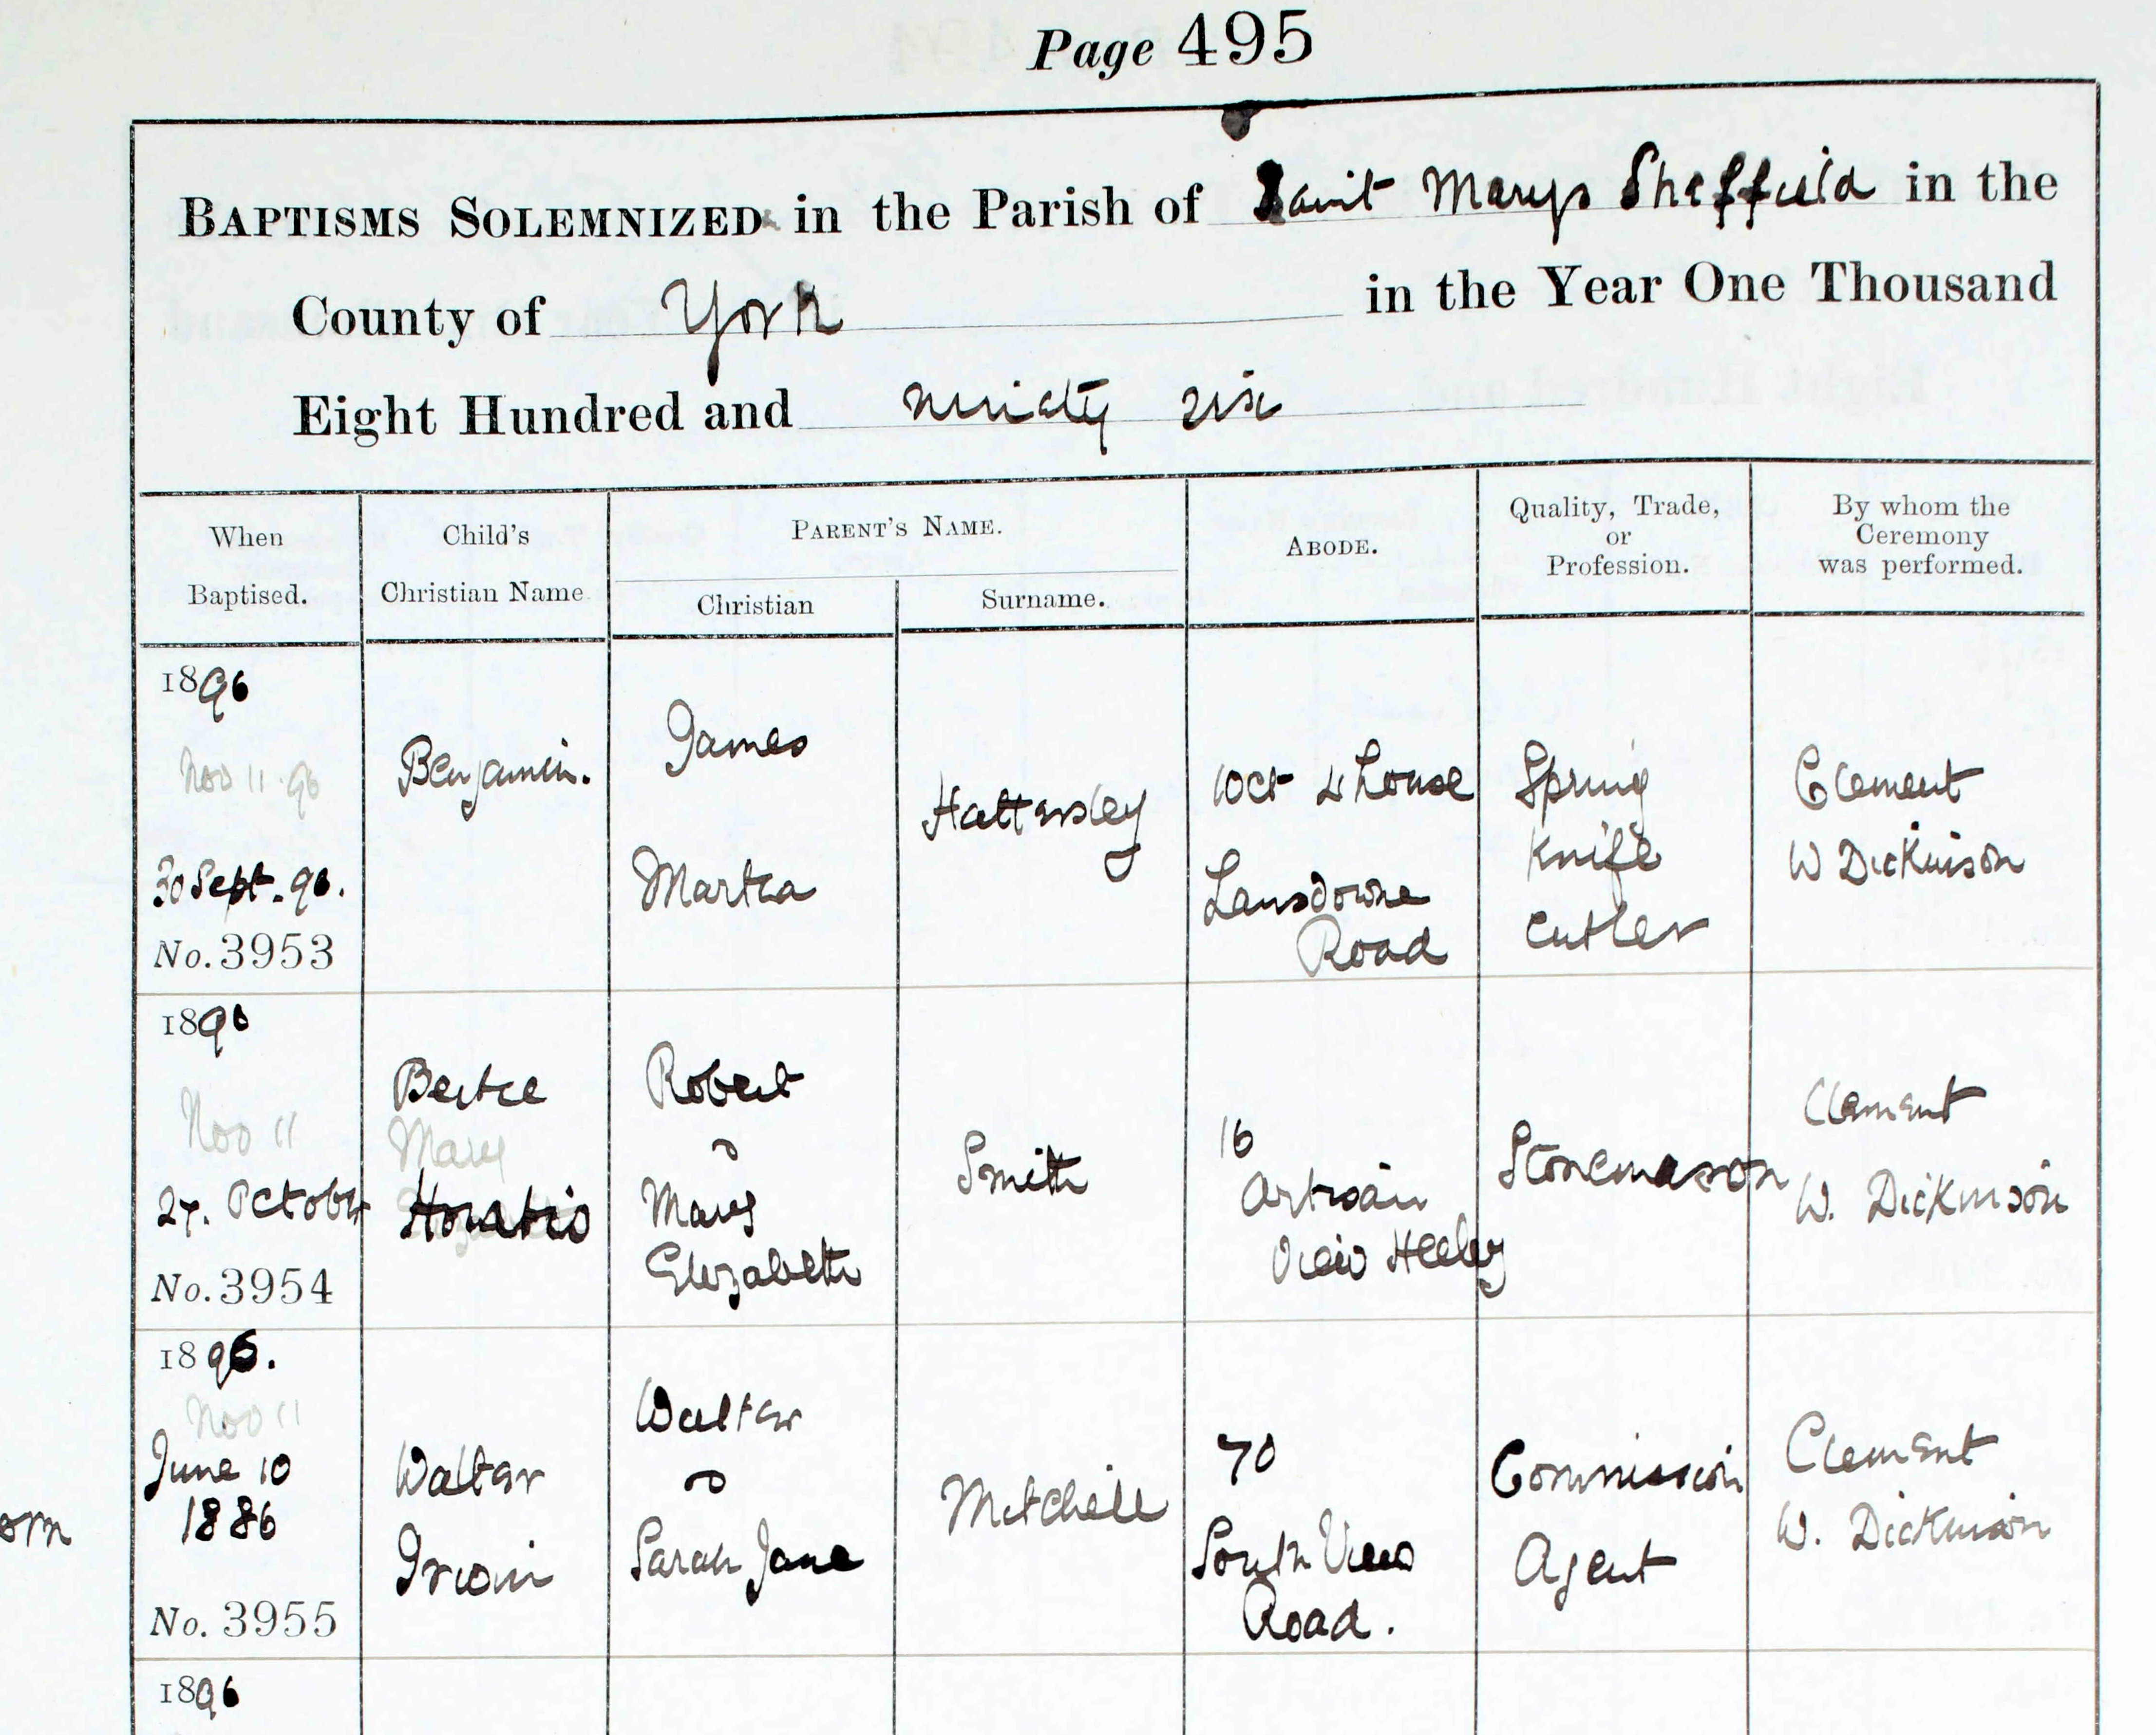 Page 495
BAPTISMS SOLEMNIZED in the Parish of Saint Marys Sheffield in the
County of York in the Year One Thousand
Eight Hundred and ninety six
When
Baptised.
Child's
Christian Name
PARENT'S NAME.
Christian
Surname.
ABODE.
Quality, Trade,
or
Profession.
By whom the
Ceremony
was performed.
1896
Nov 11 96
30 Sept. 96.
No. 3953
Benjamin.
James
Martha
Hattersley
10 ct 4 house
Lansdowne
Road
Spring
Knife
Cutler
Clement
W Dickinson
1896
Nov 11
27. October
No. 3954
Bertie
Mary
Horatio
Robert
Mary
Elizabeth
Smith
16
Artisan
View Heeley
Stonemason
Clement
W. Dickinson
1896.
Nov 11
June 10
1886
No. 3955
Walter
Irwin
Walter
Sarah Jane
Mitchell
70
South View
Road.
Commission
Agent
Clement
W. Dickinson
1896